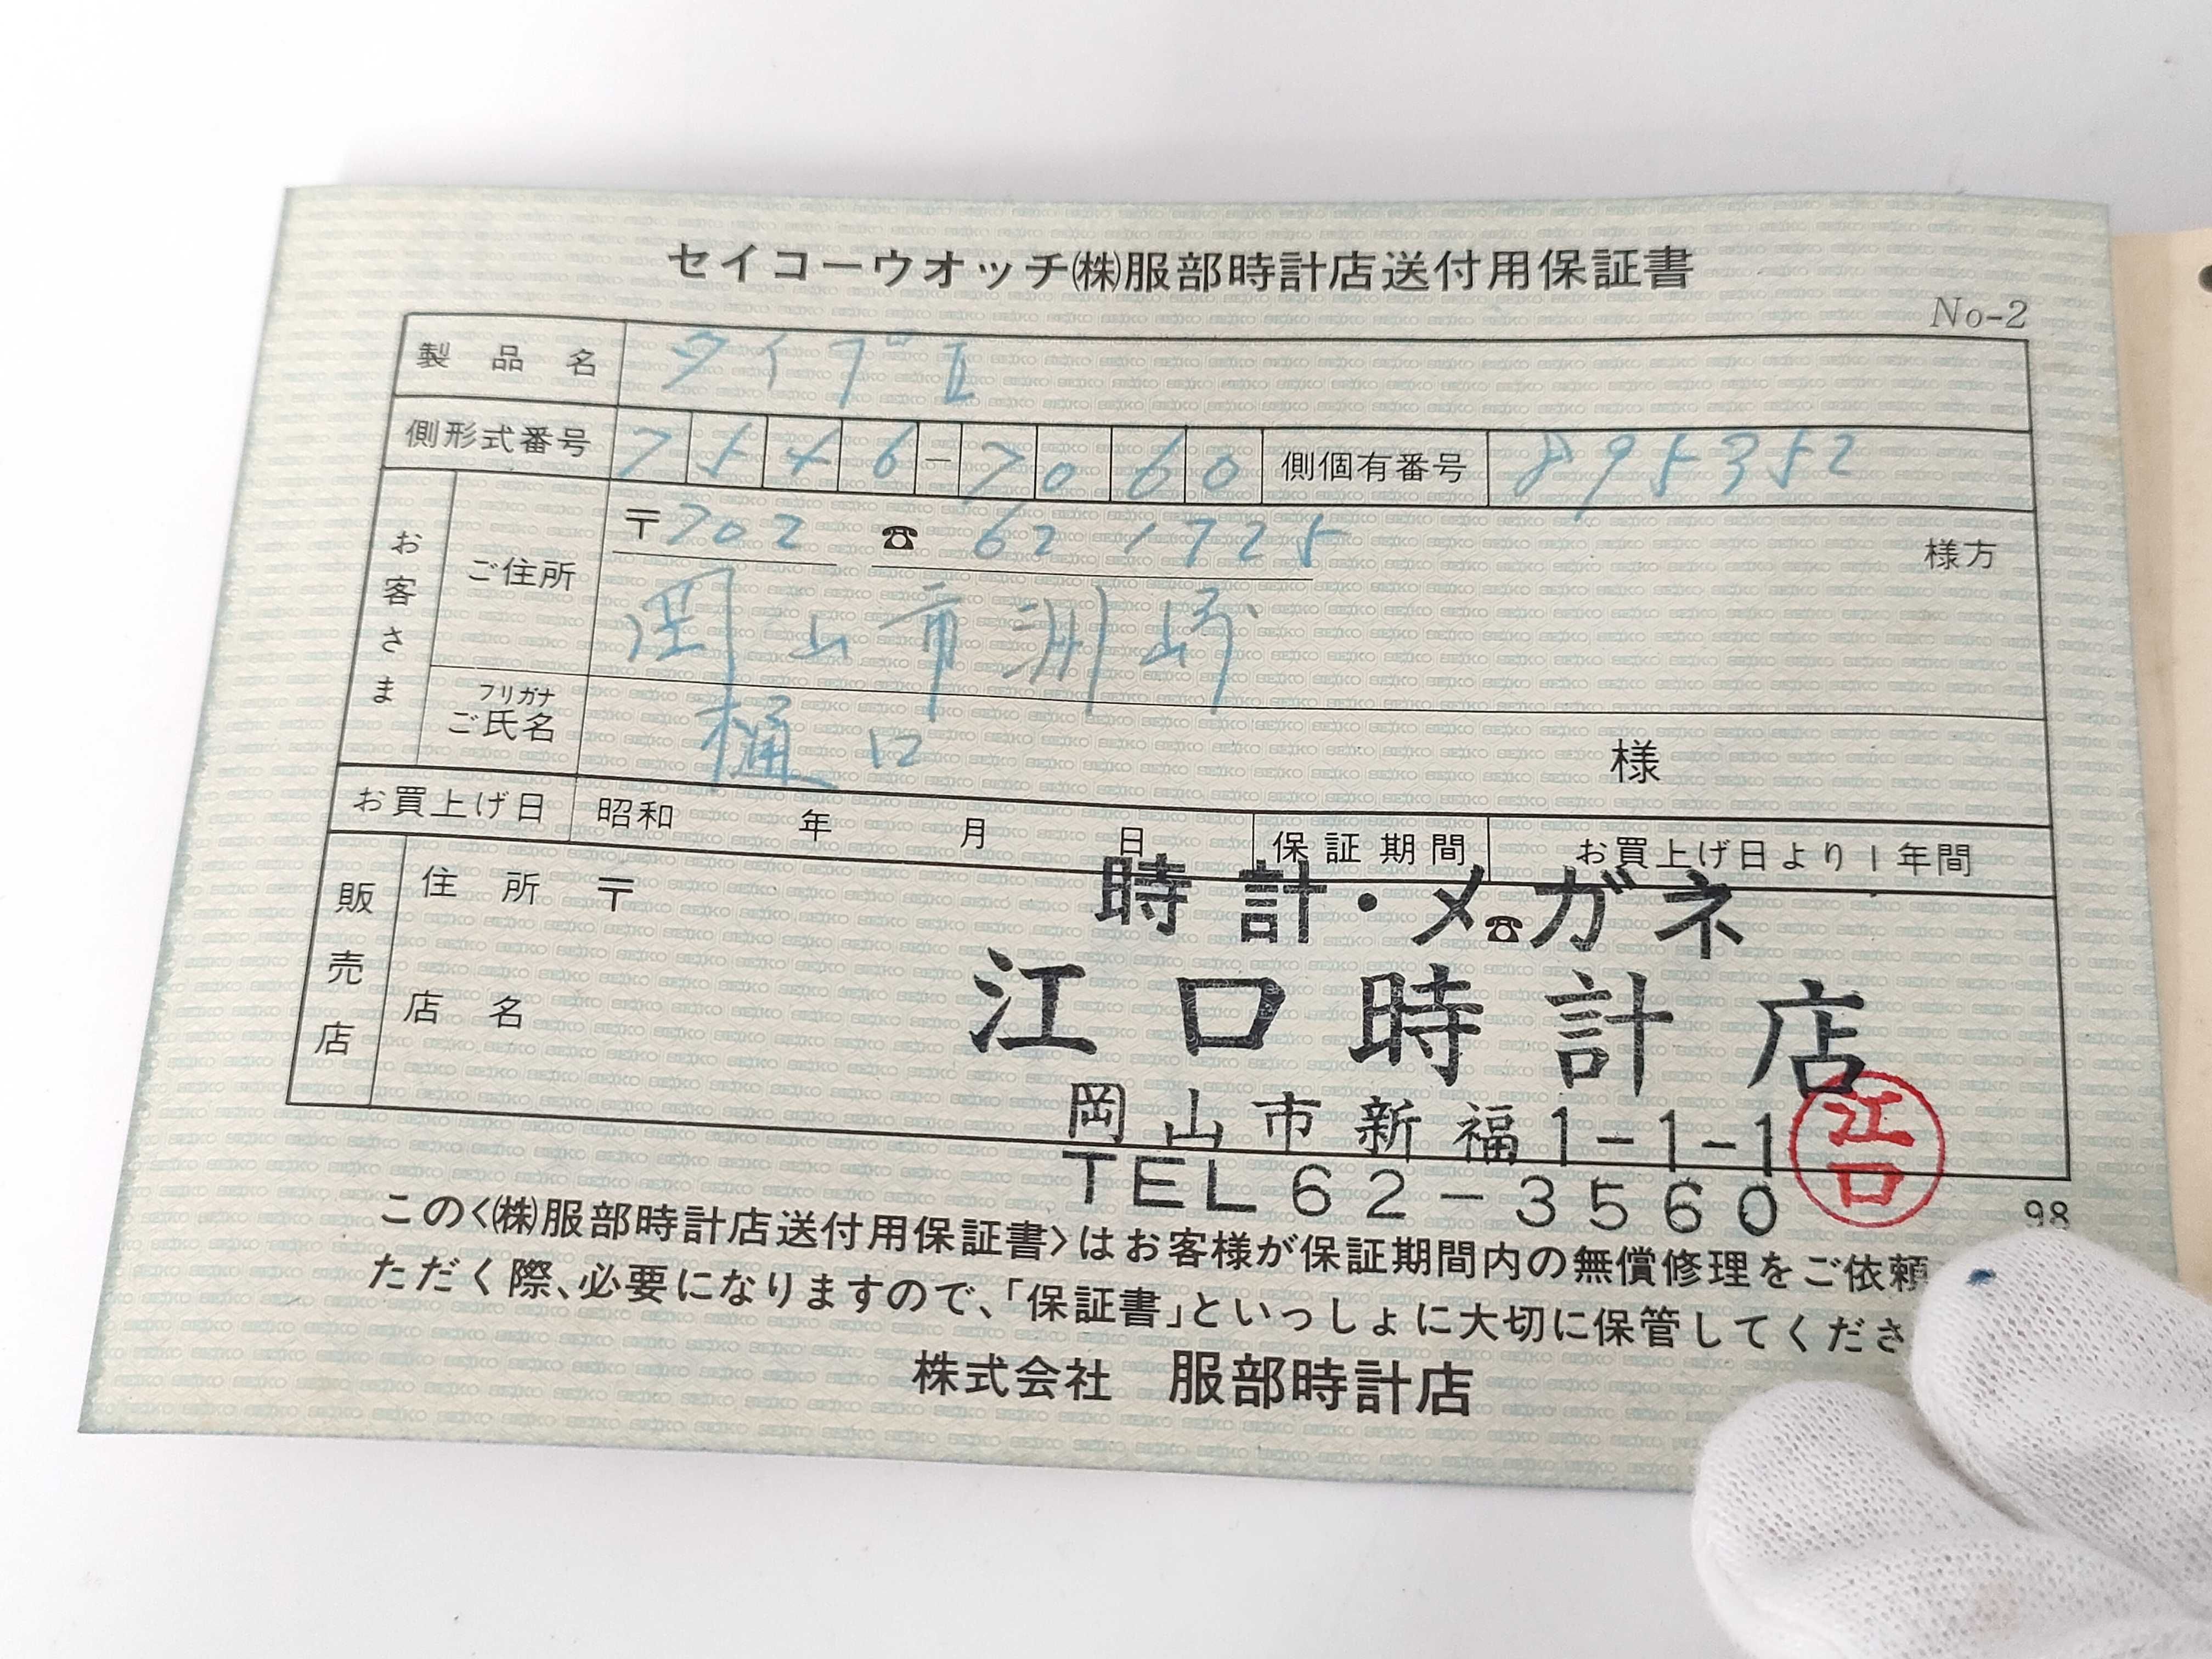 セイコーウオッチ㈱服部時計店送付用保証書
No-2
製品名 タイプⅡ
側形式番号 7546-7060 側個有番号 895352
お客さま
ご住所 〒702 ☎ 62 1725 様方
岡山市洲崎
フリガナ
ご氏名 樋口 様
お買上げ日 昭和 年 月 日 保証期間 お買上げ日より1年間
販売店
住所 〒 ☎
店名
時計・メガネ
江口時計店
岡山市新福1-1-1
江口
TEL 62-3560
98
この〈㈱服部時計店送付用保証書〉はお客様が保証期間内の無償修理をご依頼
ただく際、必要になりますので、「保証書」といっしょに大切に保管してくださ
株式会社 服部時計店
SEIKO